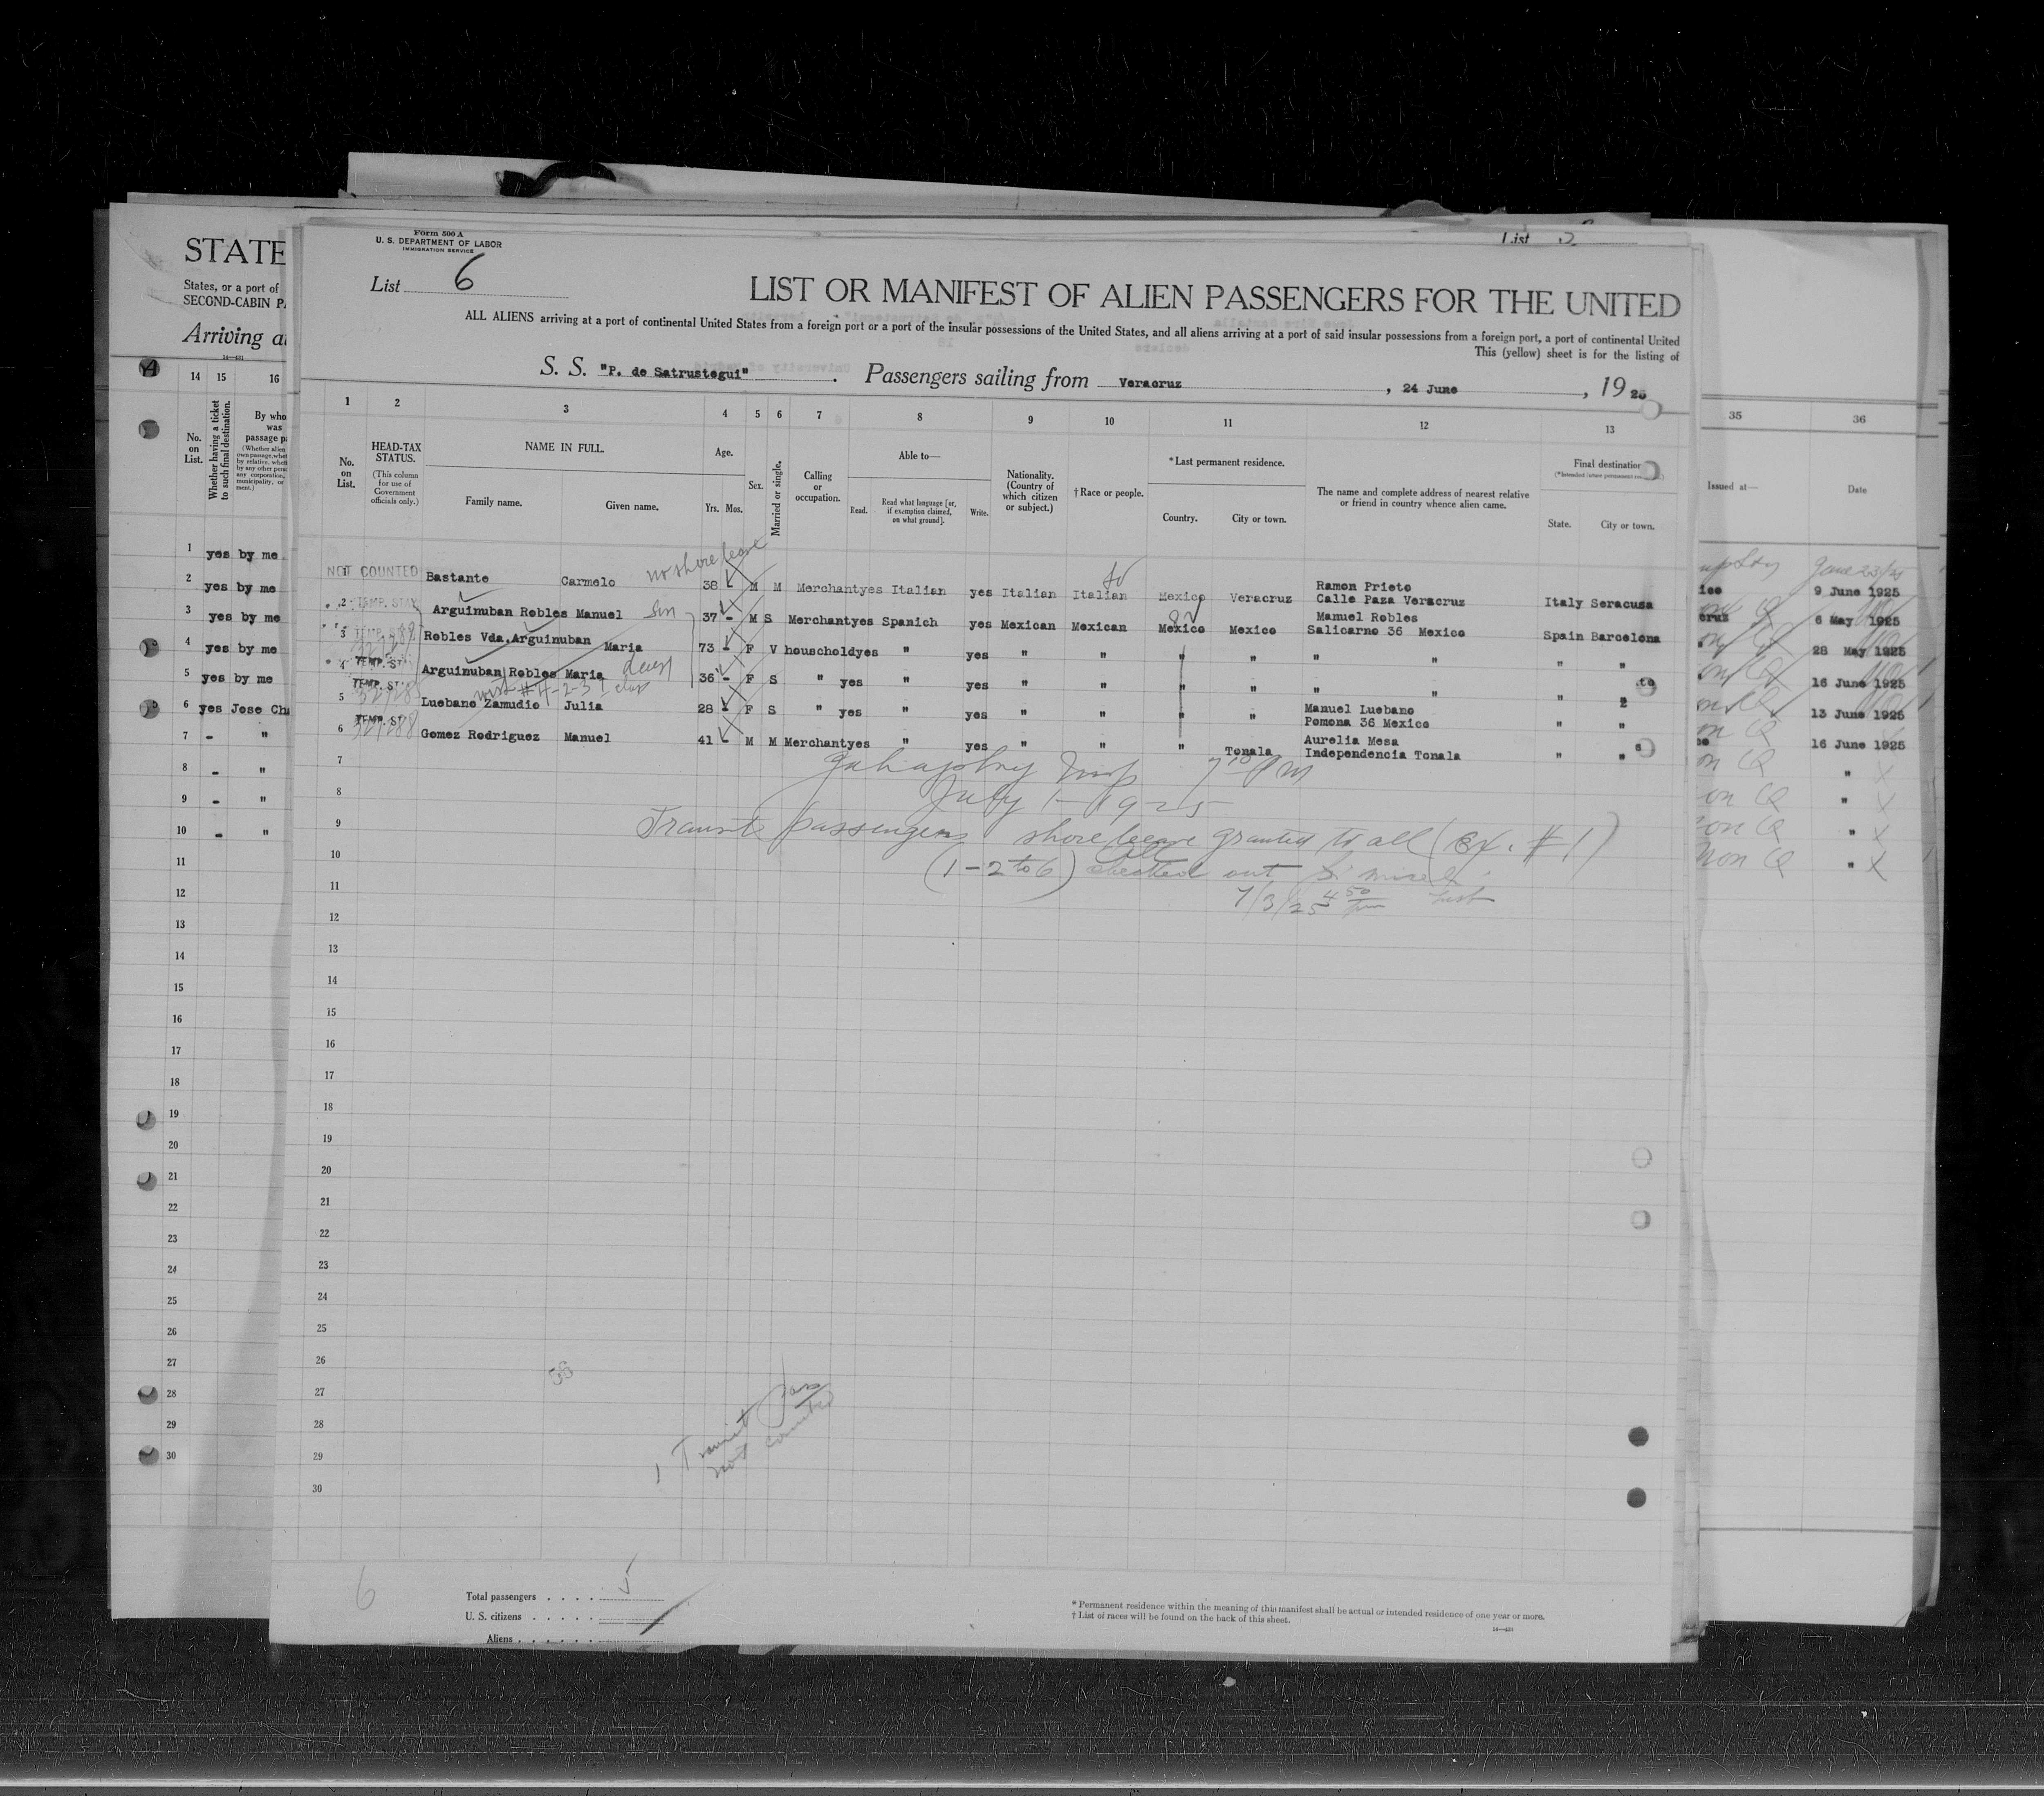 Form 500 A
U. S. DEPARTMENT OF LABOR
IMMIGRATION SERVICE
List 6
LIST OR MANIFEST OF ALIEN PASSENGERS FOR THE UNITED
ALL ALIENS arriving at a port of continental United States from a foreign port or a port of the insular possessions of the United States, and all aliens arriving at a port of said insular possessions from a foreign port, a port of continental United
This (yellow) sheet is for the listing of
S. S. "P. de Satrustegui" . Passengers sailing from Veracruz , 24 June , 19 25
1 2 3 4 5 6 7 8 9 10 11 12 13
No. on List.
HEAD-TAX STATUS.
(This column for use of Government officials only.)
NAME IN FULL.
Family name. Given name.
Age.
Yrs. Mos.
Sex.
Married or single.
Calling or occupation.
Able to—
Read. Read what language [or, if exemption claimed, on what ground]. Write.
Nationality. (Country of which citizen or subject.)
† Race or people.
*Last permanent residence.
Country. City or town.
The name and complete address of nearest relative or friend in country whence alien came.
Final destination
State. City or town.
no shore leave
NOT COUNTED Bastante Carmelo 38 - M M Merchant yes Italian yes Italian Italian Mexico Veracruz Ramon Prieto
Calle Paza Veracruz Italy Seracusa
2 TEMP. STAY Arguinuban Robles Manuel 37 - M S Merchant yes Spanich yes Mexican Mexican Mexico Mexico Manuel Robles
Salicarno 36 Mexico Spain Barcelona
3 Robles Vda. Arguinuban Maria 73 - F V household yes " yes " " " " " " " "
4 TEMP. STAY Arguinuban Robles Maria 36 - F S " yes " yes " " " " " " " "
5 TEMP. STAY Luebano Zamudio Julia 28 - F S " yes " yes " " " " Manuel Luebano
Pomona 36 Mexico " "
6 TEMP. ST Gomez Rodriguez Manuel 41 - M M Merchant yes " yes " " " Tonala Aurelia Mesa
Independencia Tonala " "
7
8 July 1-1925
9 Transit passengers shore leave granted to all (Ex. #1)
10 (1-2 to 6) checked out
11 7/3/25 4 50
12
13
14
15
16
17
18
19
20
21
22
23
24
25
26
27
28
29
30
1 Transit pass
not counted
6
Total passengers . . . . 5
U. S. citizens . . . . .
Aliens . . . . . .
* Permanent residence within the meaning of this manifest shall be actual or intended residence of one year or more.
† List of races will be found on the back of this sheet.
STATE
States, or a port of
SECOND-CABIN P
Arriving a
14 15 16
No. on List.
Whether having a ticket to such final destination.
By who
was
passage p
1 yes by me
2 yes by me
3 yes by me
4 yes by me
5 yes by me
6 yes Jose Ch
7 - "
8 - "
9 - "
10 - "
11
12
13
14
15
16
17
18
19
20
21
22
23
24
25
26
27
28
29
30
List
35 36
Issued at— Date
9 June 1925
6 May 1925
28 May 1925
16 June 1925
13 June 1925
16 June 1925
"
"
"
"